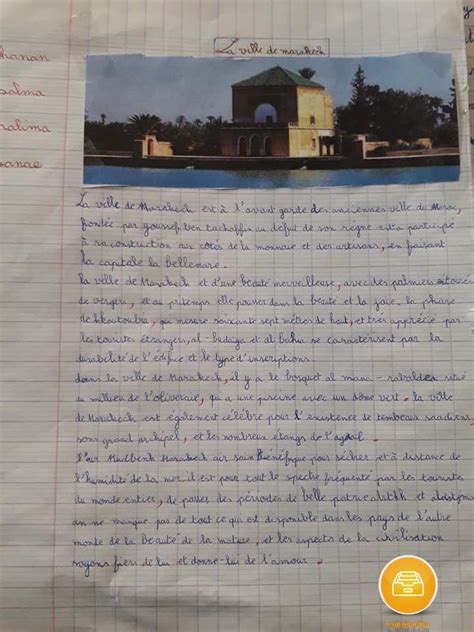 hanan
salma
halima
sanae
La ville de marakech
La ville de Marakech est à l'avant garde des anciennes ville du Maroc,
fondée par youssef ben tachaffin au début de son regne et a participé
à sa construction aux côtés de la monnaie et des artisans, en faisant
la capitale la bellemare.
la ville de Marakech et d'une beauté merveilleuse, avec des palmiers entourée
de vergers, et au printemps elle pousse dans la beauté et la joie. la phare
de kkoutoubia, qui mesure soixante sept mètres de haut, et tres apprécié par
les touristes étrangers, al-badaya et al bahia se caractérisent par la
durabilité de l'édifice et le type d'inscriptions.
dans la ville de Marakech, il y a le bosquet al mana - situé
au milieu de l'oliveraie, qui a une piscine avec un dôme vert. la ville
de Marakech est également célébre pour l'existence de tembeaux saadiens,
sous grand archipel, et les nombreux étangs de l'agdal.
l'air Marakech air sain bénéfique pour sécher et à distance de
l'humidité de la mer, il est pour tout le spectre fréquenté par les touristes
du monde entier, de passer des périodes de belle patrie et
an ne manque pas de tout ce qui est disponible dans les pays de l'autre
monde de la beauté de la nature, et les aspects de la civilisation
soyons fiers de lui et donne-lui de l'amour.